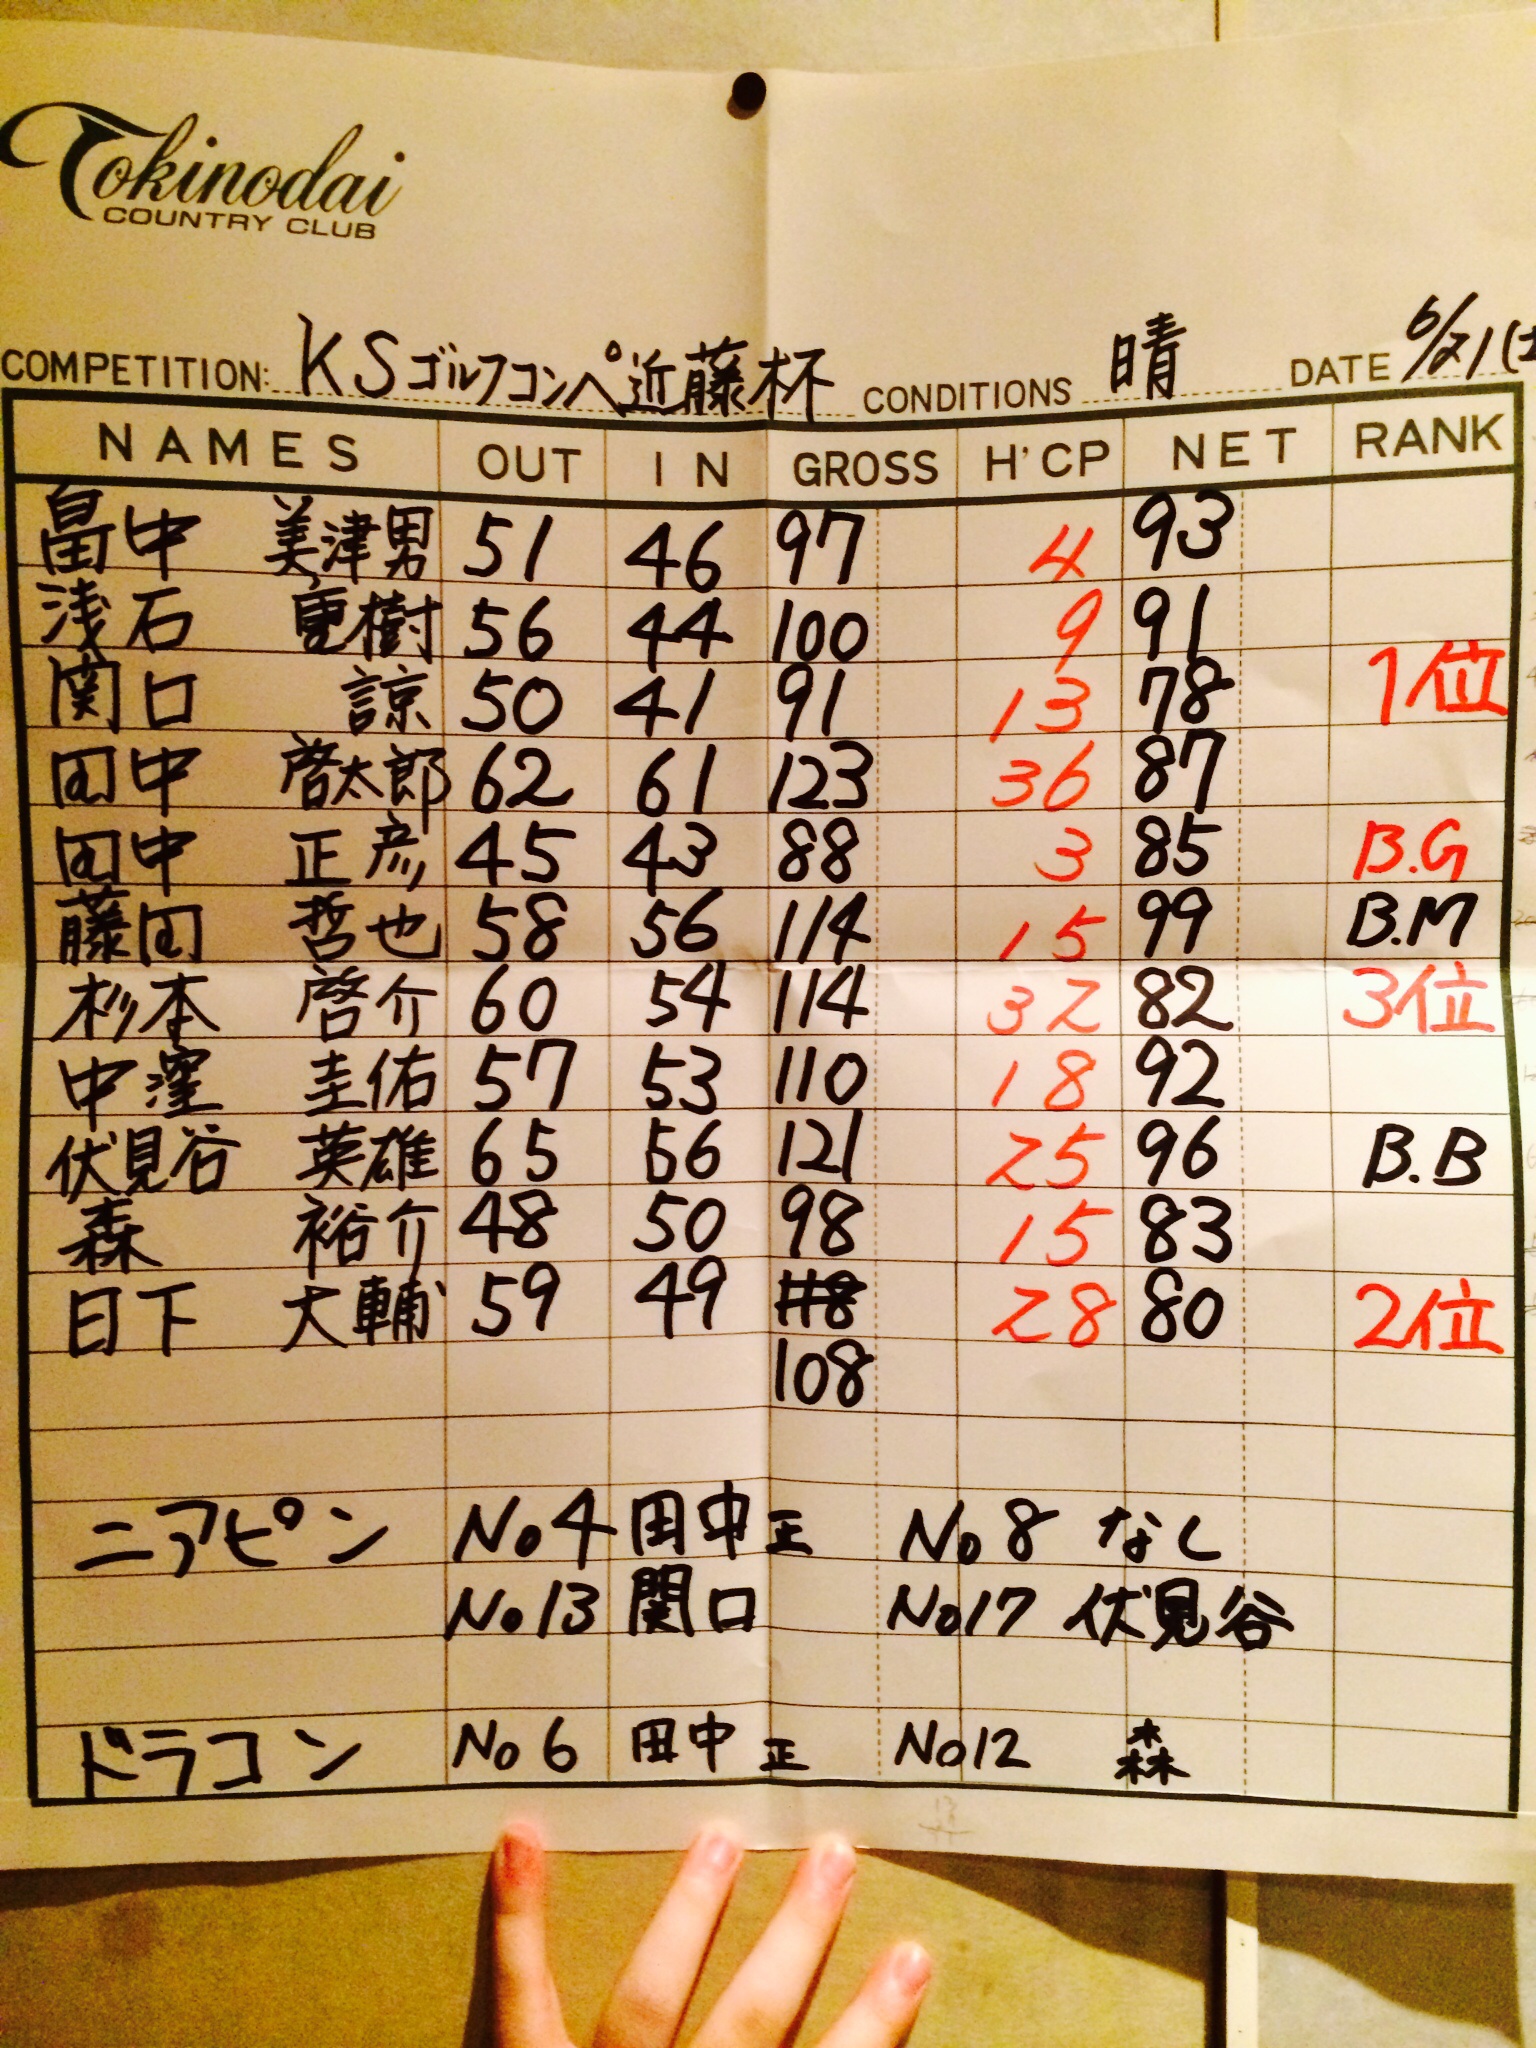 Tokinodai
COUNTRY CLUB
COMPETITION: KSゴルフコンペ近藤杯 CONDITIONS 晴 DATE 6/21(土
NAMES OUT IN GROSS H'CP NET RANK
畠中 美津男 51 46 97 4 93
浅石 重樹 56 44 100 9 91
関口 諒 50 41 91 13 78 1位
田中 啓太郎 62 61 123 36 87
田中 正彦 45 43 88 3 85 B.G
藤田 哲也 58 56 114 15 99 B.M
杉本 啓介 60 54 114 32 82 3位
中窪 圭佑 57 53 110 18 92
伏見谷 英雄 65 56 121 25 96 B.B
森 裕介 48 50 98 15 83
日下 大輔 59 49 118 28 80 2位
108
ニアピン No4 田中正 No8 なし
No13 関口 No17 伏見谷
ドラコン No6 田中正 No12 森